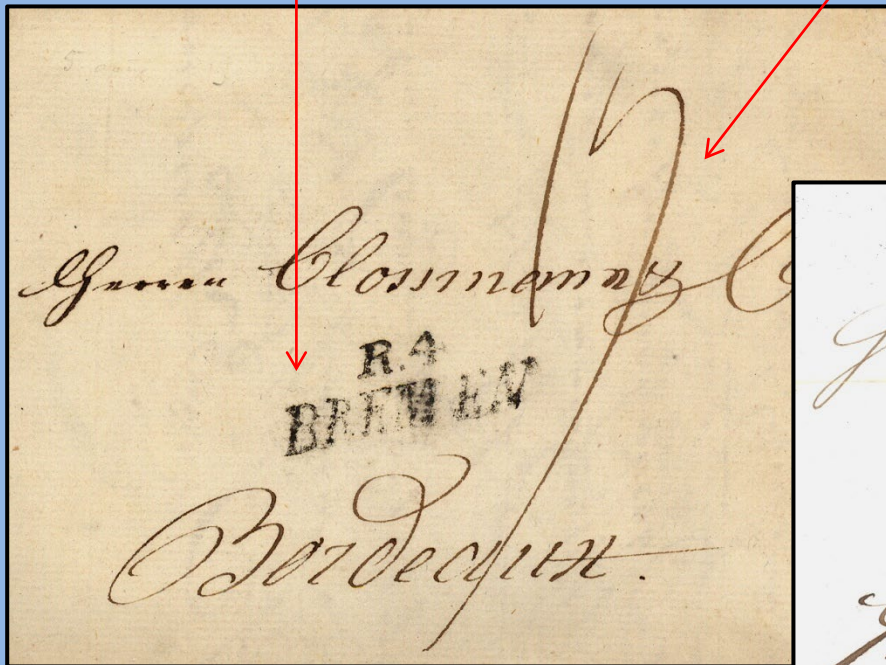 17
Herren Clossmann & C
R.4
BREMEN
Bordeaux.